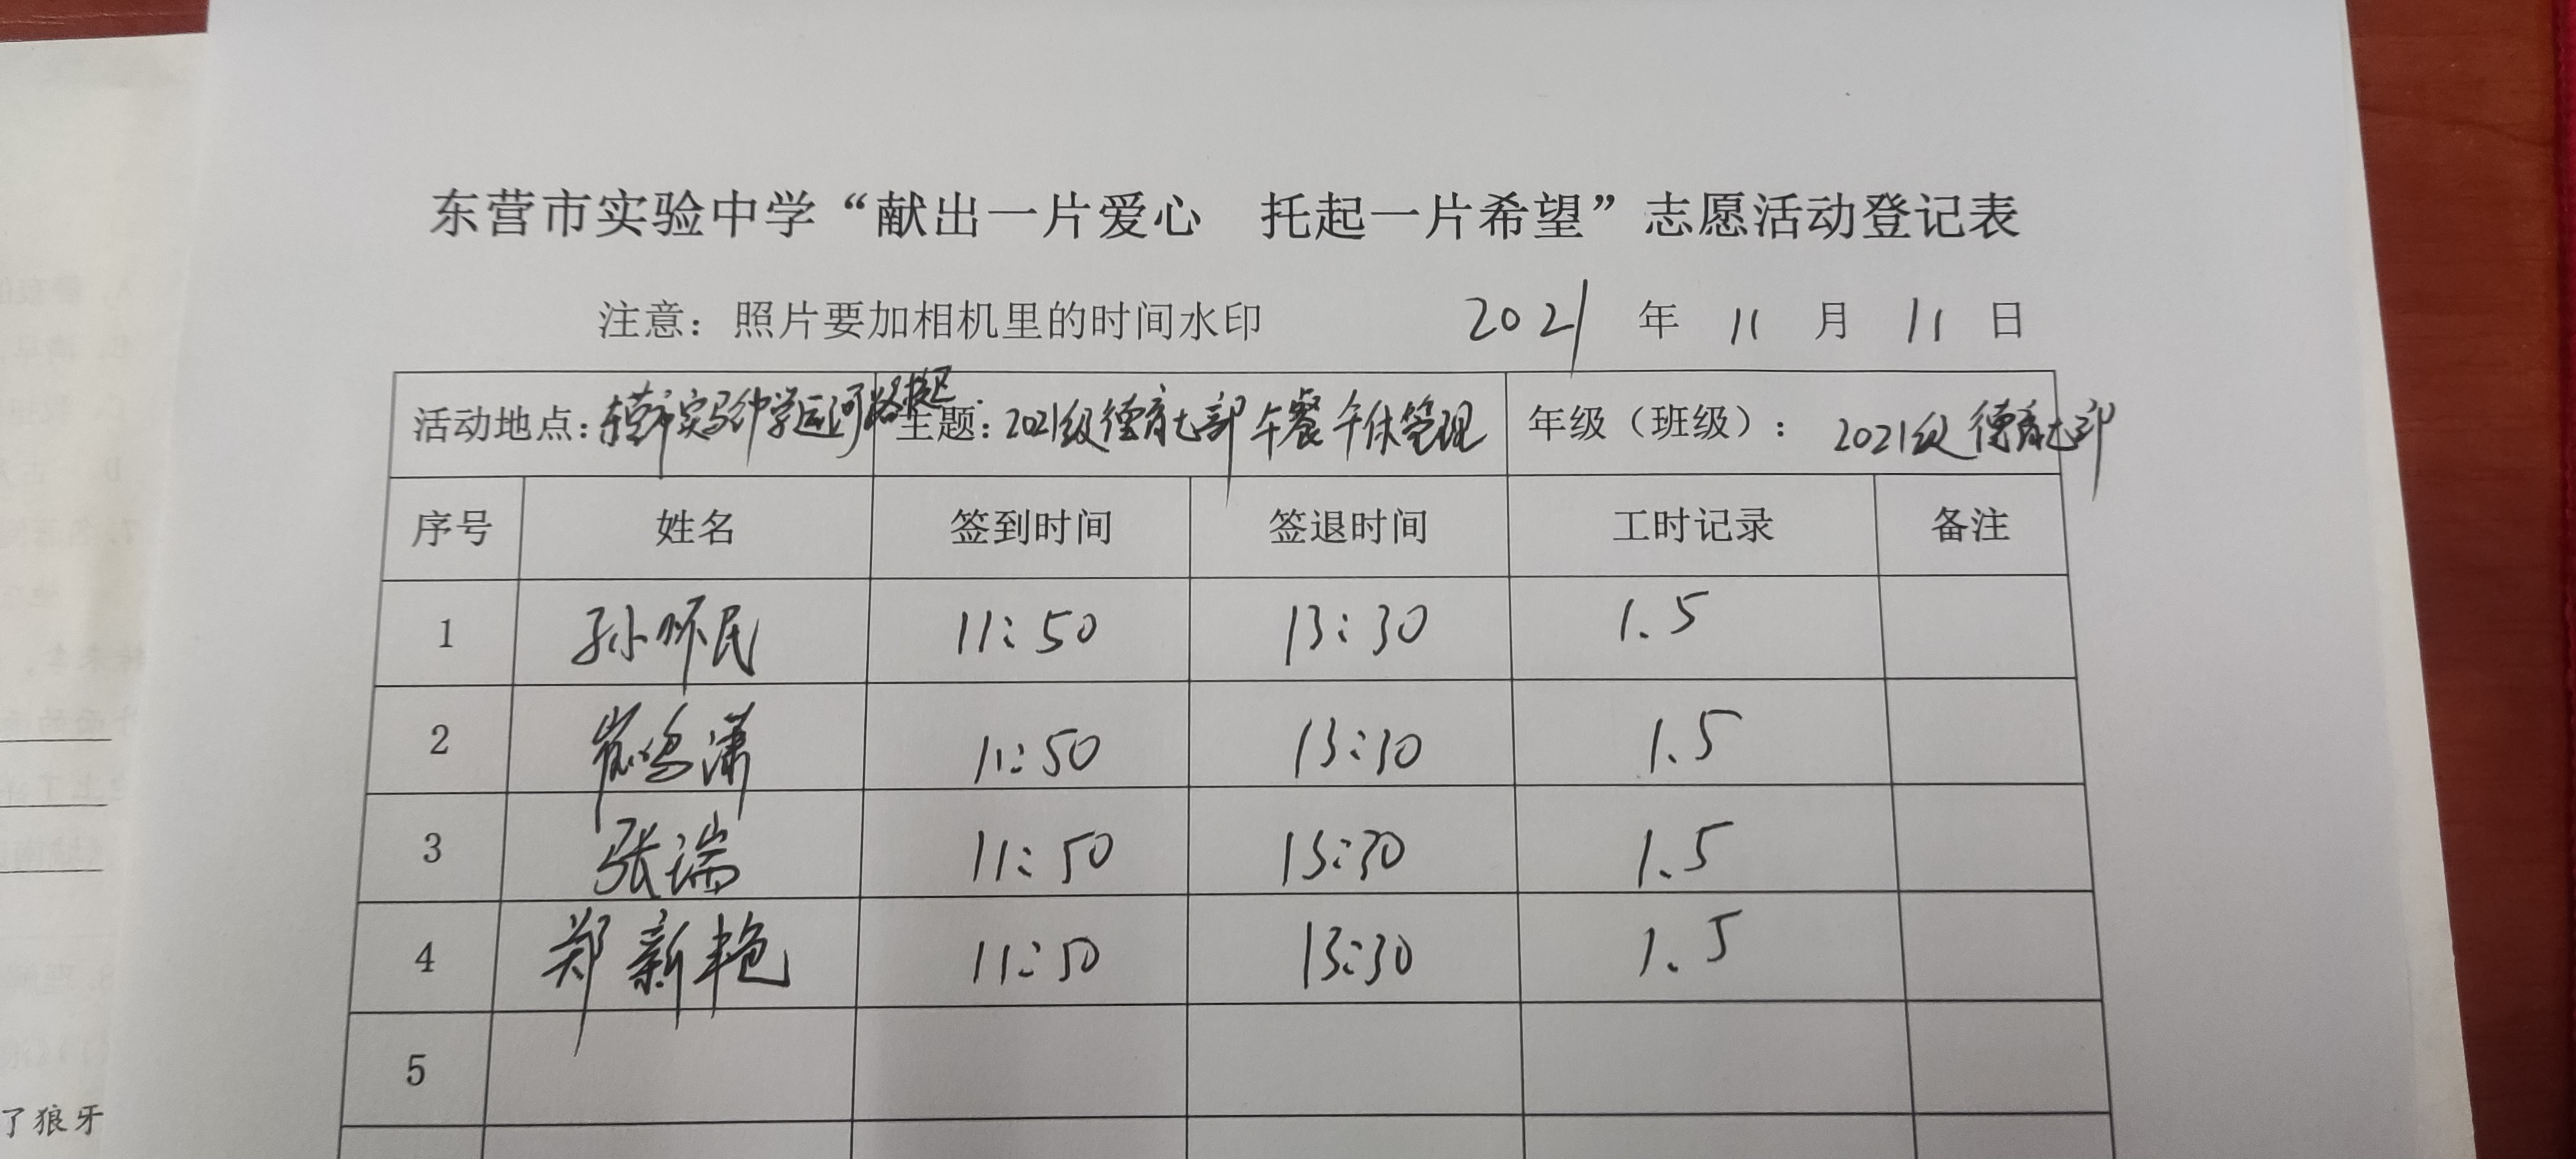 东营市实验中学“献出一片爱心 托起一片希望”志愿活动登记表
注意：照片要加相机里的时间水印 2021 年 11 月 11 日
活动地点：东营市实验中学运河路校区 主题：2021级德育七部午餐午休管理 年级（班级）： 2021级德育七部
序号 姓名 签到时间 签退时间 工时记录 备注
1 孙怀民 11:50 13:30 1.5
2 崔鸣潇 11:50 13:30 1.5
3 张瑞 11:50 13:30 1.5
4 郑新艳 11:50 13:30 1.5
5
了狼牙